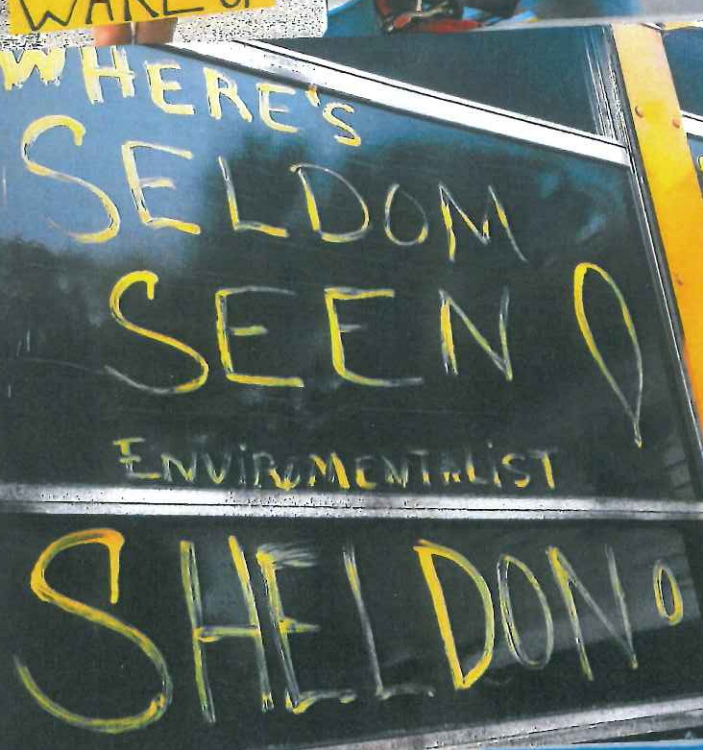 WAKE UP
WHERE'S
SELDOM
SEEN!
ENVIROMENTALIST
SHELDON!